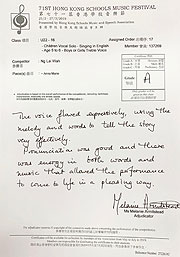 71ST HONG KONG SCHOOLS MUSIC FESTIVAL
第七十一屆香港學校音樂節
Hong Kong Schools Music and Speech Association
Class: U22 - 16
Children Vocal Solo - Singing in English
- Age 5 to 8 - Boys or Girls Treble Voice
Assigned Order: 17
Competitor
Piece(s)
Grade
A
The voice flowed expressively, using the
melody and words to tell the story
very effectively.
Pronunciation was good and there
was energy in both words and
music that allowed the performance
to come to life in a pleasing way.
Melanie Armitstead
Ms Melanie Armitstead
Adjudicator